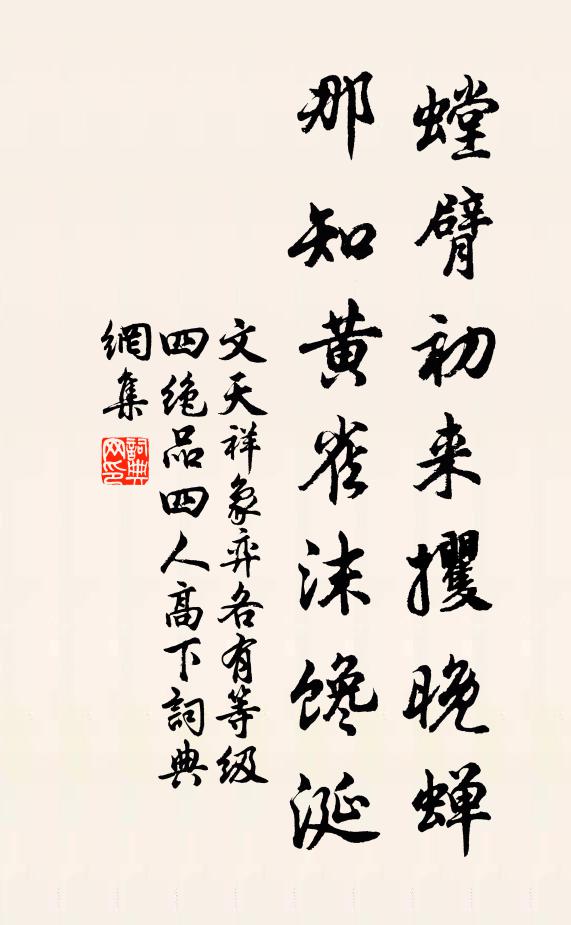 螳臂初来攫晚蝉
那知黄雀沫馋涎
文天祥象弈各有等级
四绝品四人高下詞典
網集
詞典網印